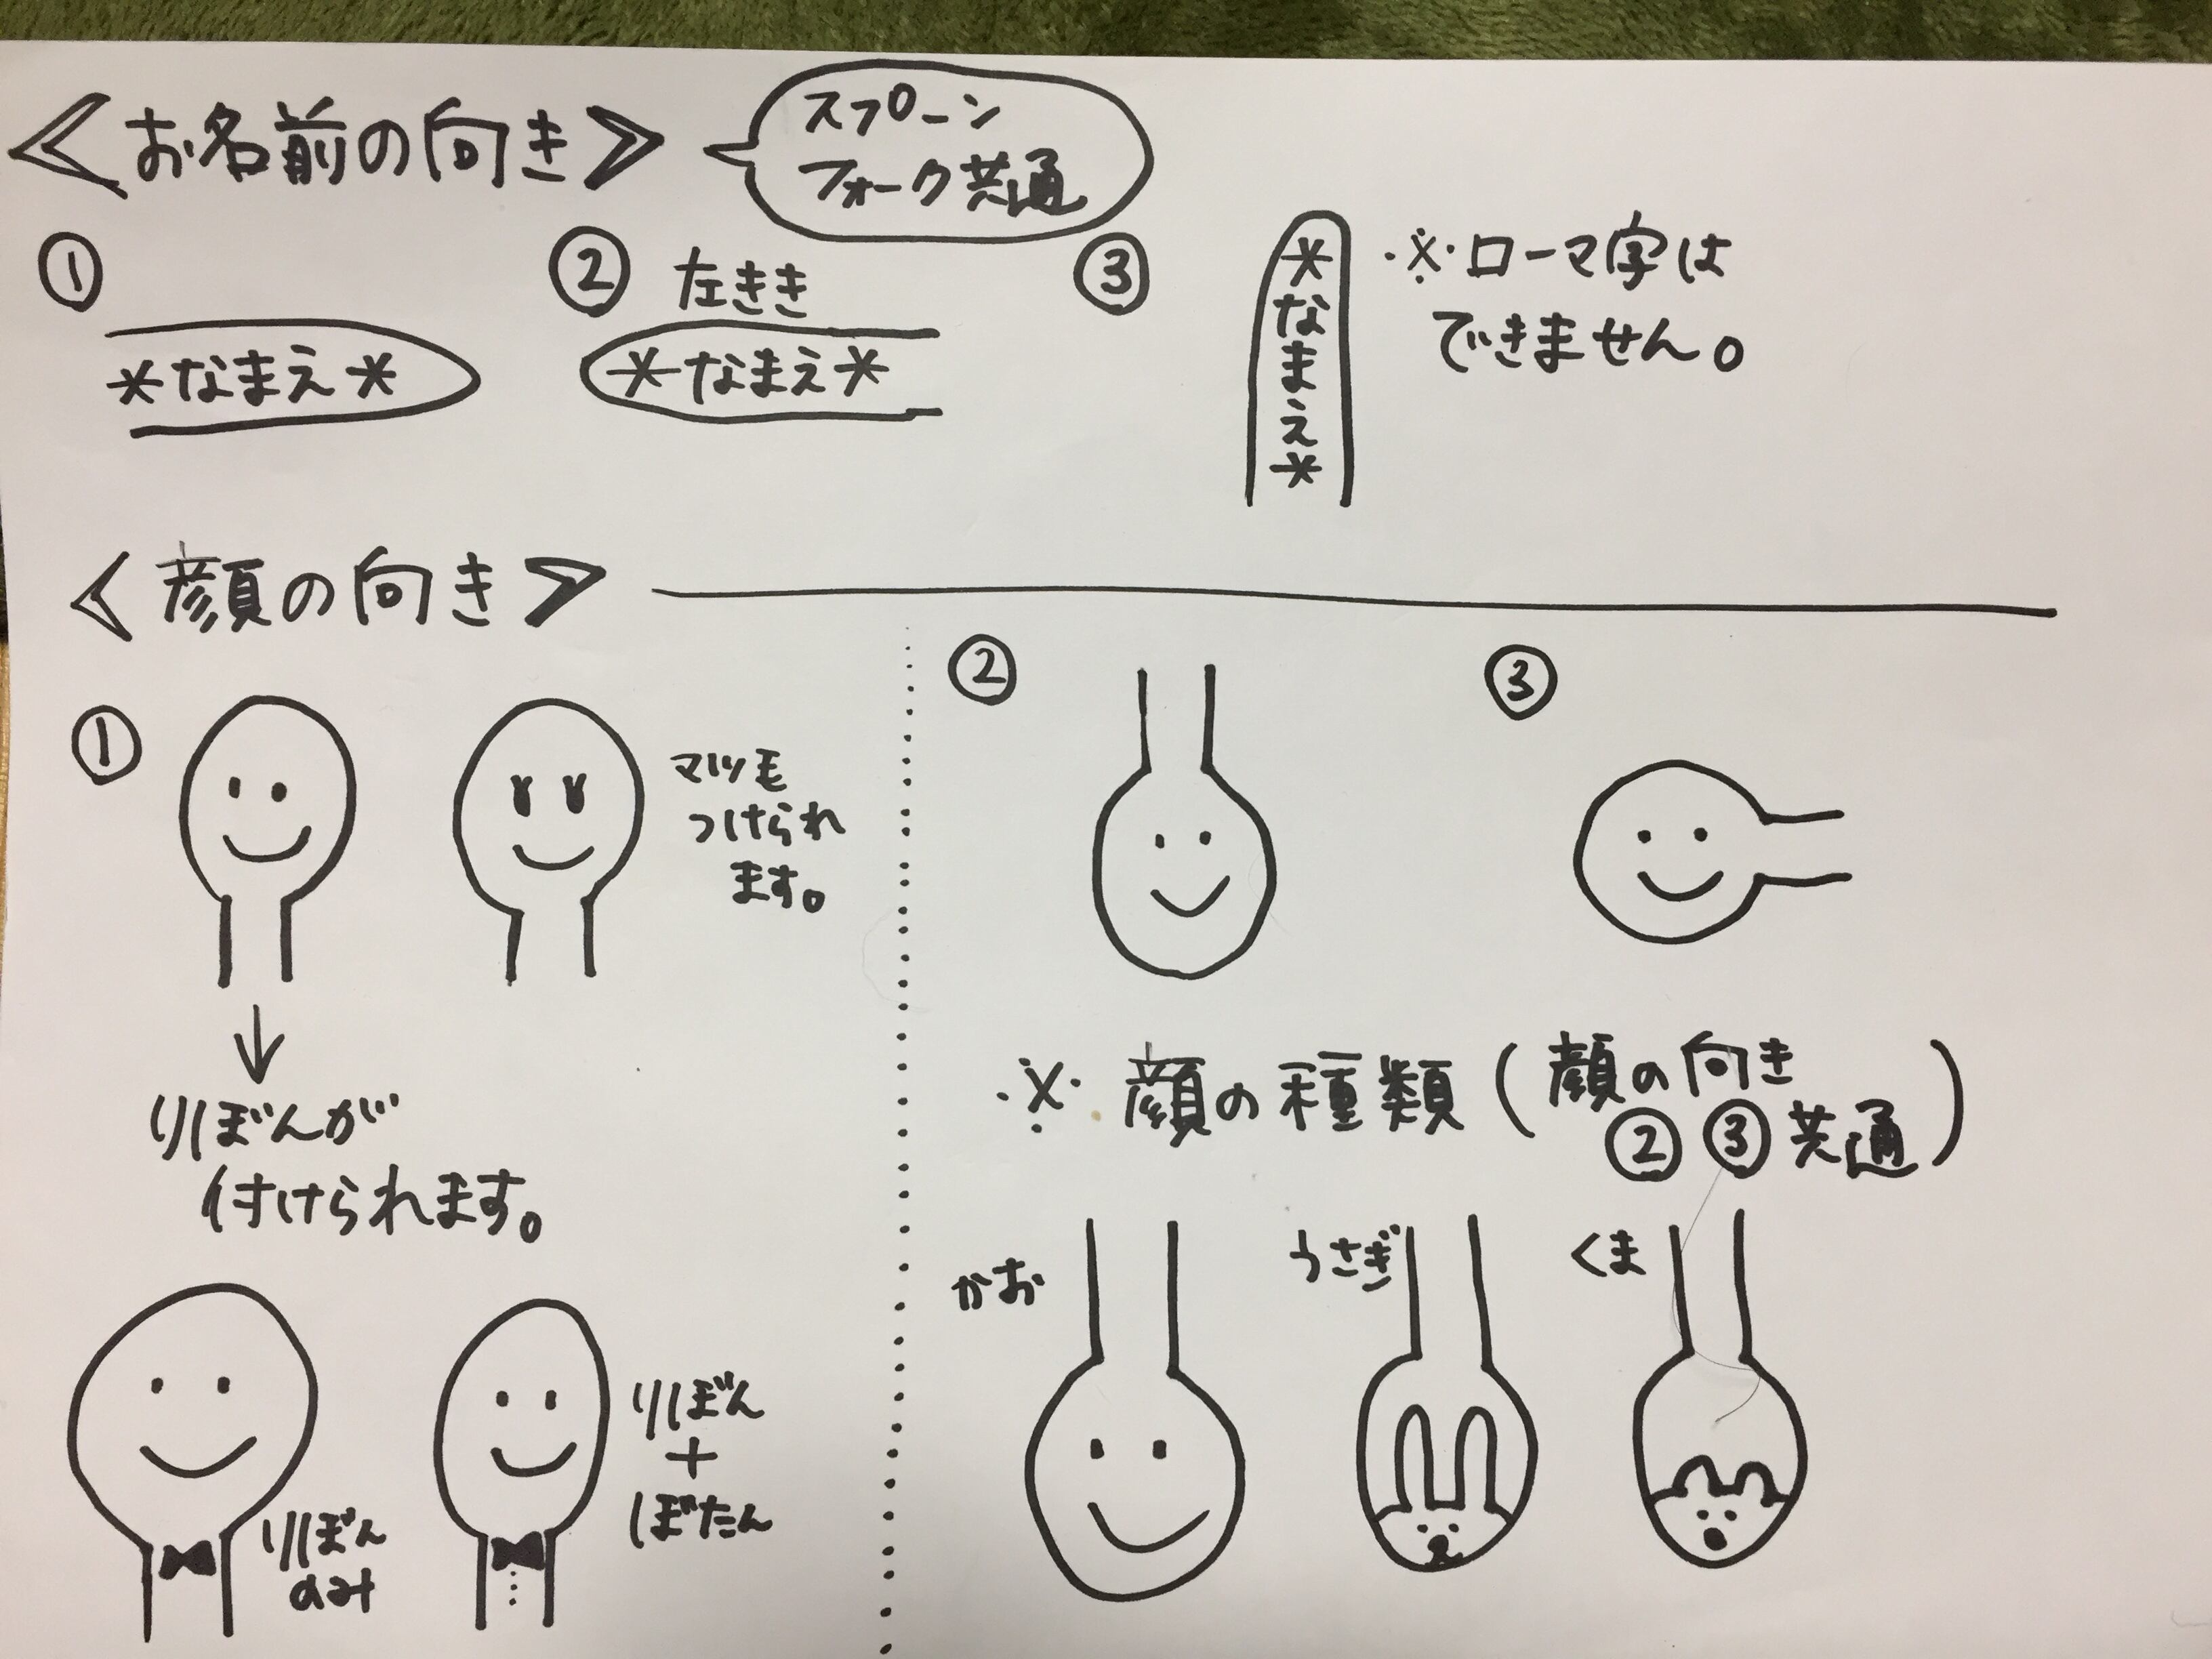 ＜お名前の向き＞
スプーン
フォーク共通
①
② 左きき
③
*なまえ*
*なまえ*
*なまえ*
※ローマ字は
できません。
＜顔の向き＞
①
マツ毛
つけられ
ます。
↓
りぼんが
付けられます。
りぼん
のみ
りぼん
+
ぼたん
②
③
※顔の種類(顔の向き
②③共通)
かお
うさぎ
くま